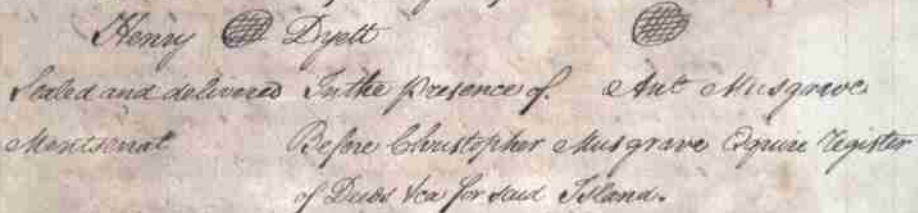 Henry Dyett
Sealed and delivered In the Presence of. Ant Musgrave
Montserrat Before Christopher Musgrave Esquire Register
of Deeds &ca for said Island.